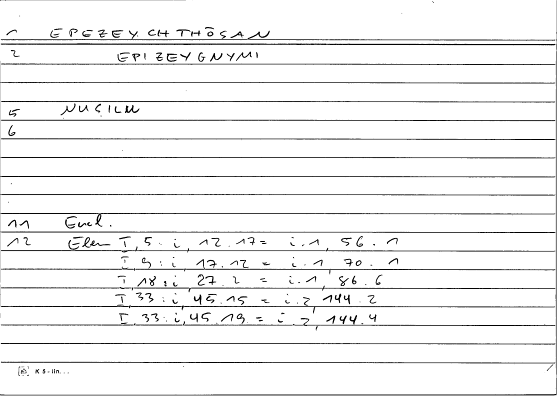 1 EPEZEYCHTHŌSAN
2 EPIZEYGNYMI
5 NUCILM
6
11 Eucl.
12 Elem I, 5 : i, 12.17 = i.1, 56.1
I, 9 : i, 17.12 = i.1, 70.1
I, 18 : i, 27.2 = i.1, 86.6
I, 33 : i, 45.15 = i.2, 144.2
I, 33 : i, 45.19 = i.2, 144.4
K 5 - lin...